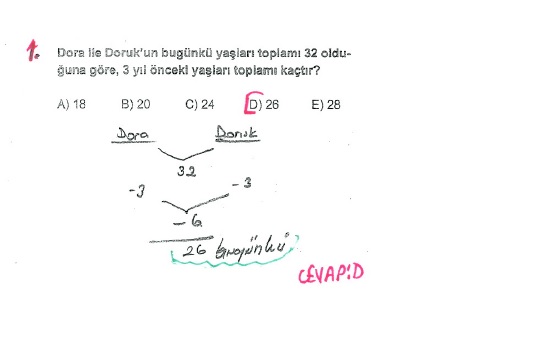 1. Dora ile Doruk'un bugünkü yaşları toplamı 32 oldu-
ğuna göre, 3 yıl önceki yaşları toplamı kaçtır?
A) 18 B) 20 C) 24 D) 26 E) 28
Dora Doruk
32
-3 -3
- 6
26 bugünkü
CEVAP:D